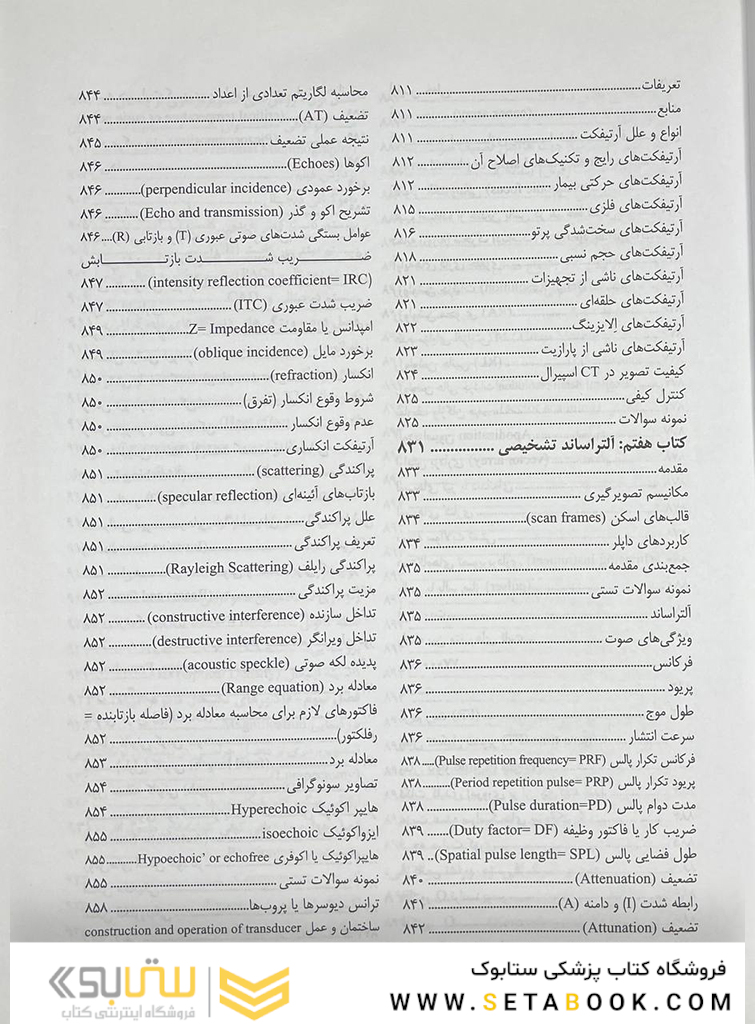 تعریفات ..... ۸۱۱
منابع ..... ۸۱۱
انواع و علل آرتیفکت ..... ۸۱۱
آرتیفکت‌های رایج و تکنیک‌های اصلاح آن ..... ۸۱۲
آرتیفکت‌های حرکتی بیمار ..... ۸۱۲
آرتیفکت‌های فلزی ..... ۸۱۵
آرتیفکت‌های سخت‌شدگی پرتو ..... ۸۱۶
آرتیفکت‌های حجم نسبی ..... ۸۱۸
آرتیفکت‌های ناشی از تجهیزات ..... ۸۲۱
آرتیفکت‌های حلقه‌ای ..... ۸۲۱
آرتیفکت‌های اِلایزینگ ..... ۸۲۲
آرتیفکت‌های ناشی از پارازیت ..... ۸۲۳
کیفیت تصویر در CT اسپیرال ..... ۸۲۴
کنترل کیفی ..... ۸۲۵
نمونه سوالات ..... ۸۲۵
کتاب هفتم: آلتراساند تشخیصی ..... ۸۳۱
مقدمه ..... ۸۳۳
مکانیسم تصویرگیری ..... ۸۳۳
قالب‌های اسکن (scan frames) ..... ۸۳۴
کاربردهای داپلر ..... ۸۳۴
جمع‌بندی مقدمه ..... ۸۳۵
نمونه سوالات تستی ..... ۸۳۵
آلتراساند ..... ۸۳۵
ویژگی‌های صوت ..... ۸۳۵
فرکانس ..... ۸۳۶
پریود ..... ۸۳۶
طول موج ..... ۸۳۶
سرعت انتشار ..... ۸۳۶
فرکانس تکرار پالس (Pulse repetition frequency= PRF) ..... ۸۳۸
پریود تکرار پالس (Period repetition pulse= PRP) ..... ۸۳۸
مدت دوام پالس (Pulse duration=PD) ..... ۸۳۸
ضریب کار یا فاکتور وظیفه (Duty factor= DF) ..... ۸۳۹
طول فضایی پالس (Spatial pulse length= SPL) .. ۸۳۹
تضعیف (Attenuation) ..... ۸۴۰
رابطه شدت (I) و دامنه (A) ..... ۸۴۱
تضعیف (Attunation) ..... ۸۴۲
محاسبه لگاریتم تعدادی از اعداد ..... ۸۴۴
تضعیف (AT) ..... ۸۴۴
نتیجه عملی تضعیف ..... ۸۴۵
اکوها (Echoes) ..... ۸۴۶
برخورد عمودی (perpendicular incidence) ..... ۸۴۶
تشریح اکو و گذر (Echo and transmission) ..... ۸۴۶
عوامل بستگی شدت‌های صوتی عبوری (T) و بازتابی (R) .... ۸۴۶
ضریب شدت بازتابش
(intensity reflection coefficient= IRC) ..... ۸۴۷
ضریب شدت عبوری (ITC) ..... ۸۴۷
امپدانس یا مقاومت Z= Impedance ..... ۸۴۹
برخورد مایل (oblique incidence) ..... ۸۴۹
انکسار (refraction) ..... ۸۵۰
شروط وقوع انکسار (تفرق) ..... ۸۵۰
عدم وقوع انکسار ..... ۸۵۰
آرتیفکت انکساری ..... ۸۵۰
پراکندگی (scattering) ..... ۸۵۱
بازتاب‌های آئینه‌ای (specular reflection) ..... ۸۵۱
علل پراکندگی ..... ۸۵۱
تعریف پراکندگی ..... ۸۵۱
پراکندگی رایلف (Rayleigh Scattering) ..... ۸۵۱
مزیت پراکندگی ..... ۸۵۲
تداخل سازنده (constructive interference) ..... ۸۵۲
تداخل ویرانگر (destructive interference) ..... ۸۵۲
پدیده لکه صوتی (acoustic speckle) ..... ۸۵۲
معادله برد (Range equation) ..... ۸۵۲
فاکتورهای لازم برای محاسبه معادله برد (فاصله بازتابنده =
رفلکتور) ..... ۸۵۲
معادله برد ..... ۸۵۳
تصاویر سونوگرافی ..... ۸۵۴
هایپر اکوئیک Hyperechoic ..... ۸۵۴
ایزواکوئیک isoechoic ..... ۸۵۵
هایپراکوئیک یا اکوفری Hypoechoic’ or echofree ..... ۸۵۵
نمونه سوالات تستی ..... ۸۵۵
ترانس دیوسرها یا پروب‌ها ..... ۸۵۸
ساختمان و عمل construction and operation of transducer
فروشگاه کتاب پزشکی ستابوک
WWW.SETABOOK.COM
ستابوک
فروشگاه اینترنتی کتاب